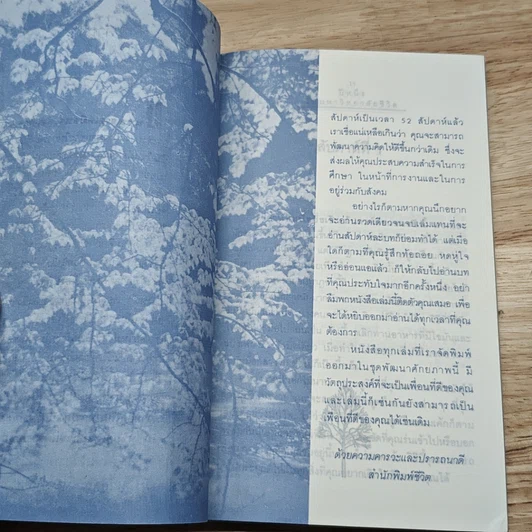 สัปดาห์เป็นเวลา 52 สัปดาห์แล้ว
เราเชื่อแน่เหลือเกินว่า คุณจะสามารถ
พัฒนาความคิดให้ดีขึ้นกว่าเดิม ซึ่งจะ
ส่งผลให้คุณประสบความสำเร็จในการ
ศึกษา ในหน้าที่การงานและในการ
อยู่ร่วมกับสังคม
อย่างไรก็ตามหากคุณนึกอยาก
จะอ่านรวดเดียวจนจบเล่มแทนที่จะ
อ่านสัปดาห์ละบทก็ย่อมทำได้ แต่เมื่อ
ใดก็ตามที่คุณรู้สึกท้อถอย หดหู่ใจ
หรืออ่อนแอแล้ว ก็ให้กลับไปอ่านบท
ที่คุณประทับใจมากอีกครั้งหนึ่ง อย่า
ลืมพกหนังสือเล่มนี้ติดตัวคุณเสมอ เพื่อ
จะได้หยิบออกมาอ่านได้ทุกเวลาที่คุณ
ต้องการ
หนังสือทุกเล่มที่เราจัดพิมพ์
ออกมาในชุดพัฒนาศักยภาพนี้ มี
วัตถุประสงค์ที่จะเป็นเพื่อนที่ดีของคุณ
และเล่มนี้ก็เช่นกันยังสามารถเป็น
เพื่อนที่ดีของคุณได้เช่นเดิม
ด้วยความคารวะและปรารถนาดี
สำนักพิมพ์ชีวิต